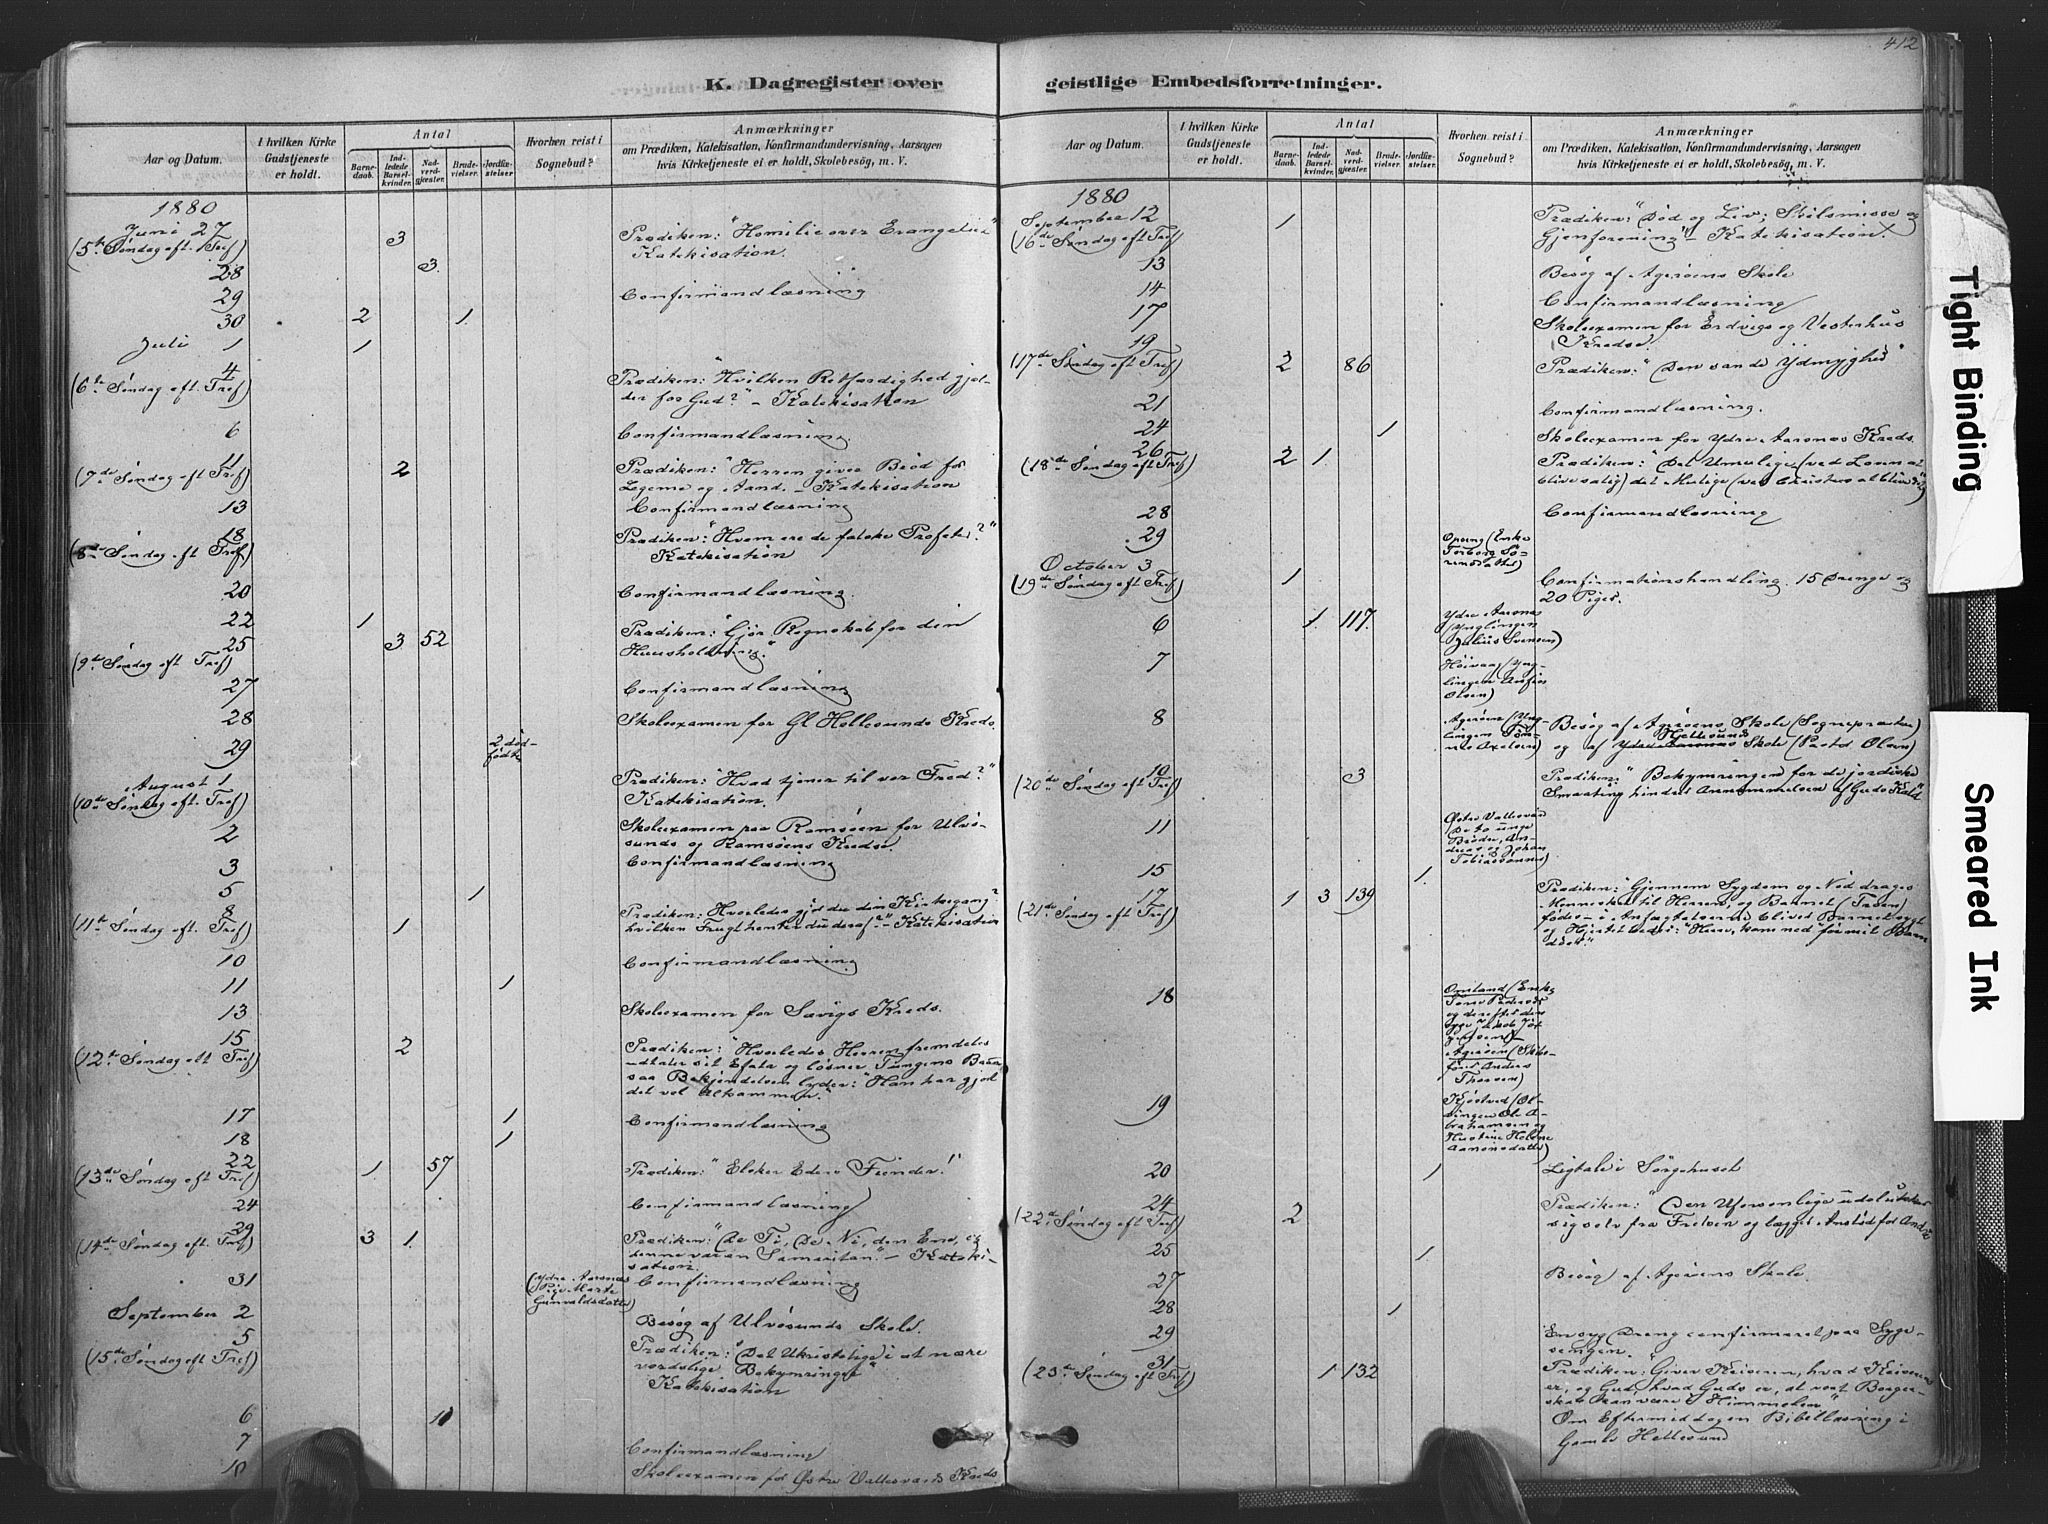 K. Dagregister over
Aar og Datum.
I hvilken Kirke Gudstjeneste er holdt.
Antal
Barnedaab.
Indledede Barselkvinder.
Nadverdgjæster.
Brudevielser.
Jordfæstelser
Hvorhen reist i Sognebud?
Anmærkninger
om Prædiken, Katekisation, Konfirmandundervisning, Aarsagen
hvis Kirketjeneste ei er holdt, Skolebesög, m. V.
1880
Juni 27
(5te Søndag eft. Tref) 3 Prædiken: "Homilie over Evangeliet"
Katekisation.
28 3
29 Confirmandlæsning
30 2 1
Juli 1 1
4
(6te Søndag eft. Tref) Prædiken: "Hvilken Retfærdighed gjæl-
der for Gud?" - Katekisation
6 Confirmandlæsning.
11
(7de Søndag eft Tref) 2 Prædiken: "Herren giver Brød for
Legeme og Aand. - Katekisation
13 Confirmandlæsning
18
(8de Søndag eft Tref) Prædiken: "Hvem ere de falske Profeter?"
Katekisation
20 Confirmandlæsning.
22 1
25 3 52 Prædiken: "Gjör Regnskab for din
(9de Søndag eft Tref) Huusholdning."
27 Confirmandlæsning
28 Skoleexamen for Gl Hellesunds Kreds.
29 2 død-
fødte
August 1
(10de Søndag eft. Tref) Prædiken: "Hvad tjener til vor Fred?"
Katekisation.
2 Skoleexamen paa Ramsøen for Ulvø-
sunds og Ramsøens Kredse.
3 Confirmandlæsning
5 1
8
(11te Søndag eft. Tref) 1 Prædiken: Hvorledes gjør du din Kirkegang?
hvilken Frugt henter du deraf?" - Katekisation
10 Confirmandlæsning
11 1
13 Skoleexamen for Sævigs Kreds.
15
(12te Søndag eft Tref) 2 Prædiken: "Hvorledes Herren fremdeles
udtaler sit Efata og løsner Tungens Baand
saa Bekjendelsen lyder: "Han har gjort
det vel Altsammen."
17 1 Confirmandlæsning
18 1
22
(13de Søndag eft Tref) 1 57 Prædiken: "Elsker Eders Fiender!"
24 Confirmandlæsning
29
(14de Søndag eft. Tref) 3 1 Prædiken: "De Ti, De Ni, den Ene, og
denne var en Samaritan." - Kateki-
sation.
31 (Ydre Aarsnæs
Pige Marte
Gunvaldsdatter) Confirmandlæsning
September 2 Besøg af Ulvøsunds Skole.
5
(15de Søndag eft Tref) Prædiken: "Det Ukristelige i at nære
verdslige Bekymringer"
Katekisation
6 10
7 Confirmandlæsning
10 Skoleexamen for Østre Vallesværds Kreds.
412
geistlige Embedsforretninger.
Aar og Datum.
I hvilken Kirke Gudstjeneste er holdt.
Antal
Barnedaab.
Indledede Barselkvinder.
Nadverdgjæster.
Brudevielser.
Jordfæstelser.
Hvorhen reist i Sognebud?
Anmærkninger
om Prædiken, Katekisation, Konfirmandundervisning, Aarsagen
hvis Kirketjeneste ei er holdt, Skolebesög, m. V.
1880
September 12 1 Prædiken: "Død og Liv; Skilsmisse og
(16de Søndag eft Tref) Gjenforening" - Katekisation.
13 Besøg af Agerøens Skole
14 Confirmandlæsning
17 Skoleexamen for Erdvigs og Vesterhus
Kredse.
19
(17de Søndag eft Tref) 2 86 Prædiken: "Den sande Ydmyghed"
21 Confirmandlæsning.
24 1 Skoleexamen for Ydre Aarsnæs Kreds.
26
(18de Søndag eft Tref) 2 1 Prædiken: "Det Umulige (ved Loven at
blive salig) det Mulige (ved Christus at blive det)"
28 Confirmandlæsning
29 (Enke
Torborg Sö-
rensdatter)
October 3
(19de Søndag eft Tref) 1 Confirmationshandling. 15 Drenge og
20 Piger.
6 1 117. Ydre Aarsnæs
(Ynglingen
Julius Svensen)
7 Høivaag (Yng-
lingen
Olsen)
8 Agerøen (Yng-
lingen
Axelsen) Besøg af Agerøens Skole (Sognepræsten)
og af Ydre Hellesunds Skole (Pastor Olsen)
10
(20de Søndag eft Tref) 3 Prædiken: "Bekymringen for de jordiske
Smaating hindrer Annammelsen af Guds Kald"
11 Østre Vallesværd
De to unge
Brødre, An-
dreas og Johan
Tobiassønner)
15 1.
17 1 3 139 Prædiken: "Gjennem Sygdom og Nød drages
(21de Søndag eft Tref) Mennesket til Herren, og Barnet (Troen)
fødes - i Anfægtelserne blives Barnet sygt
og Hjertet beder: "Herre, kom ned før mit Barn
dør."
18 Omland (Enke
og derefter den
syge Jakob Jør-
gensen)
Agerøen (Skibs-
fører Anders
Thorsen)
19 Kjøstved (Ol-
Ole A-
brahamsen og
Hustrue Helene
Aanonsdatter)
20 1 Ligtale i Sørgehuset
24
(22de Søndag eft Tref) 2 Prædiken: "Den Uforsonlige udelukker
sig selv fra Frelsen og lægger Anstød for Andre
25 1
27 Besøg af Agerøens Skole.
28 1
29 En syg Dreng confirmeret paa Syge-
sengen.
31
(23de Søndag eft Tref) 1 132 Prædiken: "Giver Keiseren, hvad Keiserens
er, og Gud, hvad Guds er, at vort Borger-
skab kan være i Himmelen"
Om Eftermiddagen Bibellæsning i
Gamle Hellesund
Tight Binding
Smeared Ink